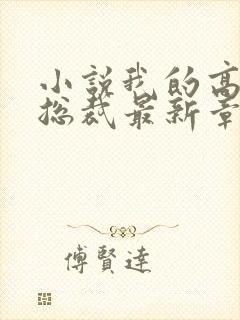 小説我的高
總裁最新章
傅賢達